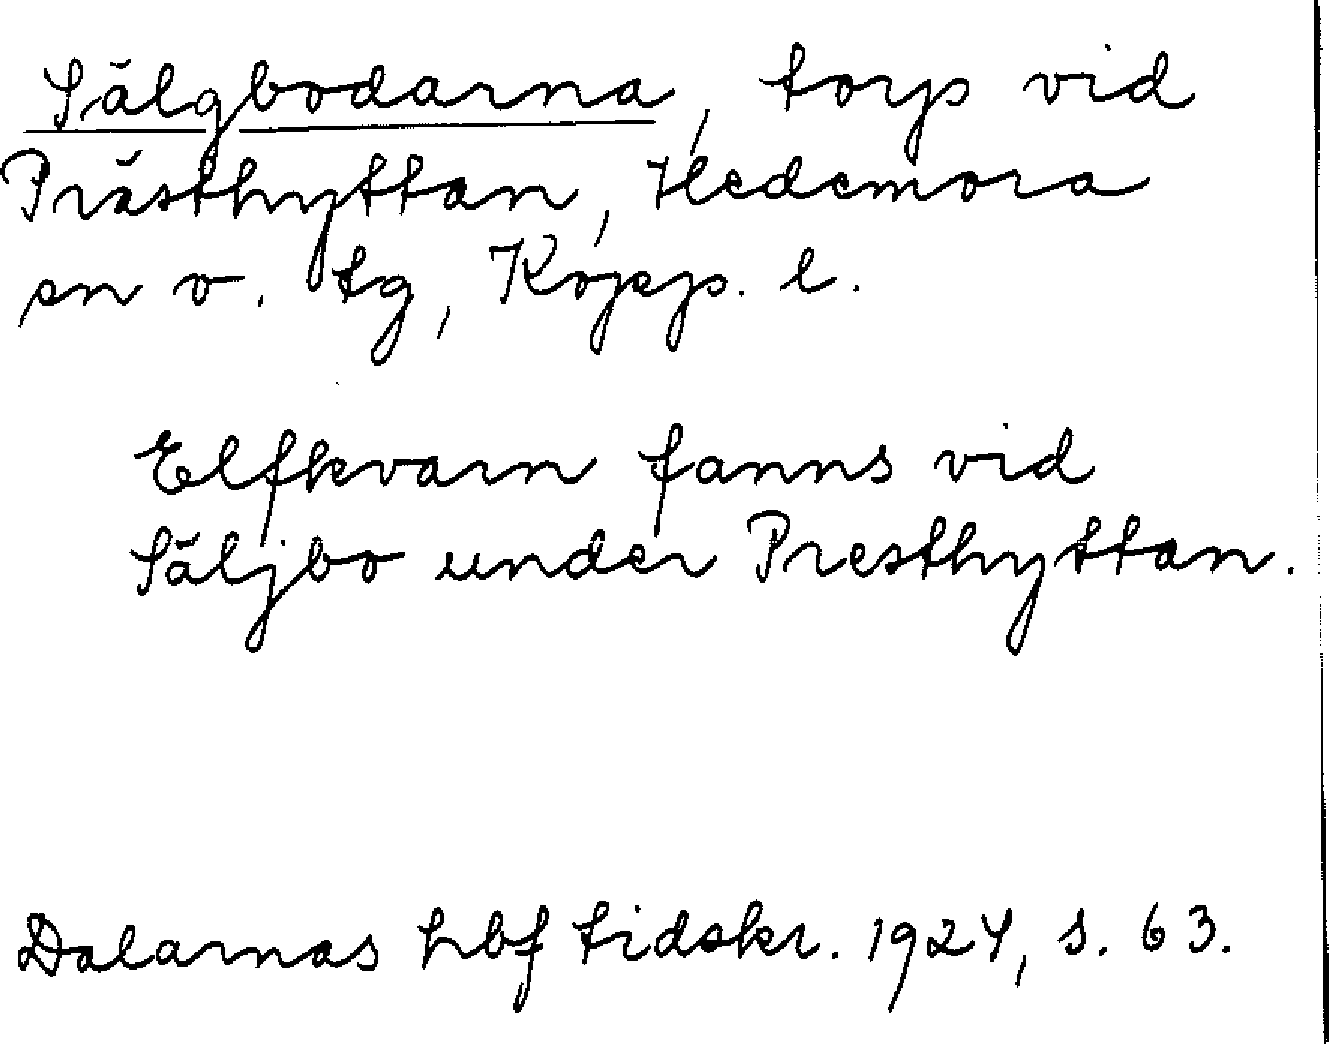 Sälgbodarna, torp vid
Prästhyttan, Hedemora
sn o. tg, Kopp. l.
Elfkvarn fanns vid
Säljbo under Presthyttan.
Dalarnas hbf tidskr. 1924, s. 63.